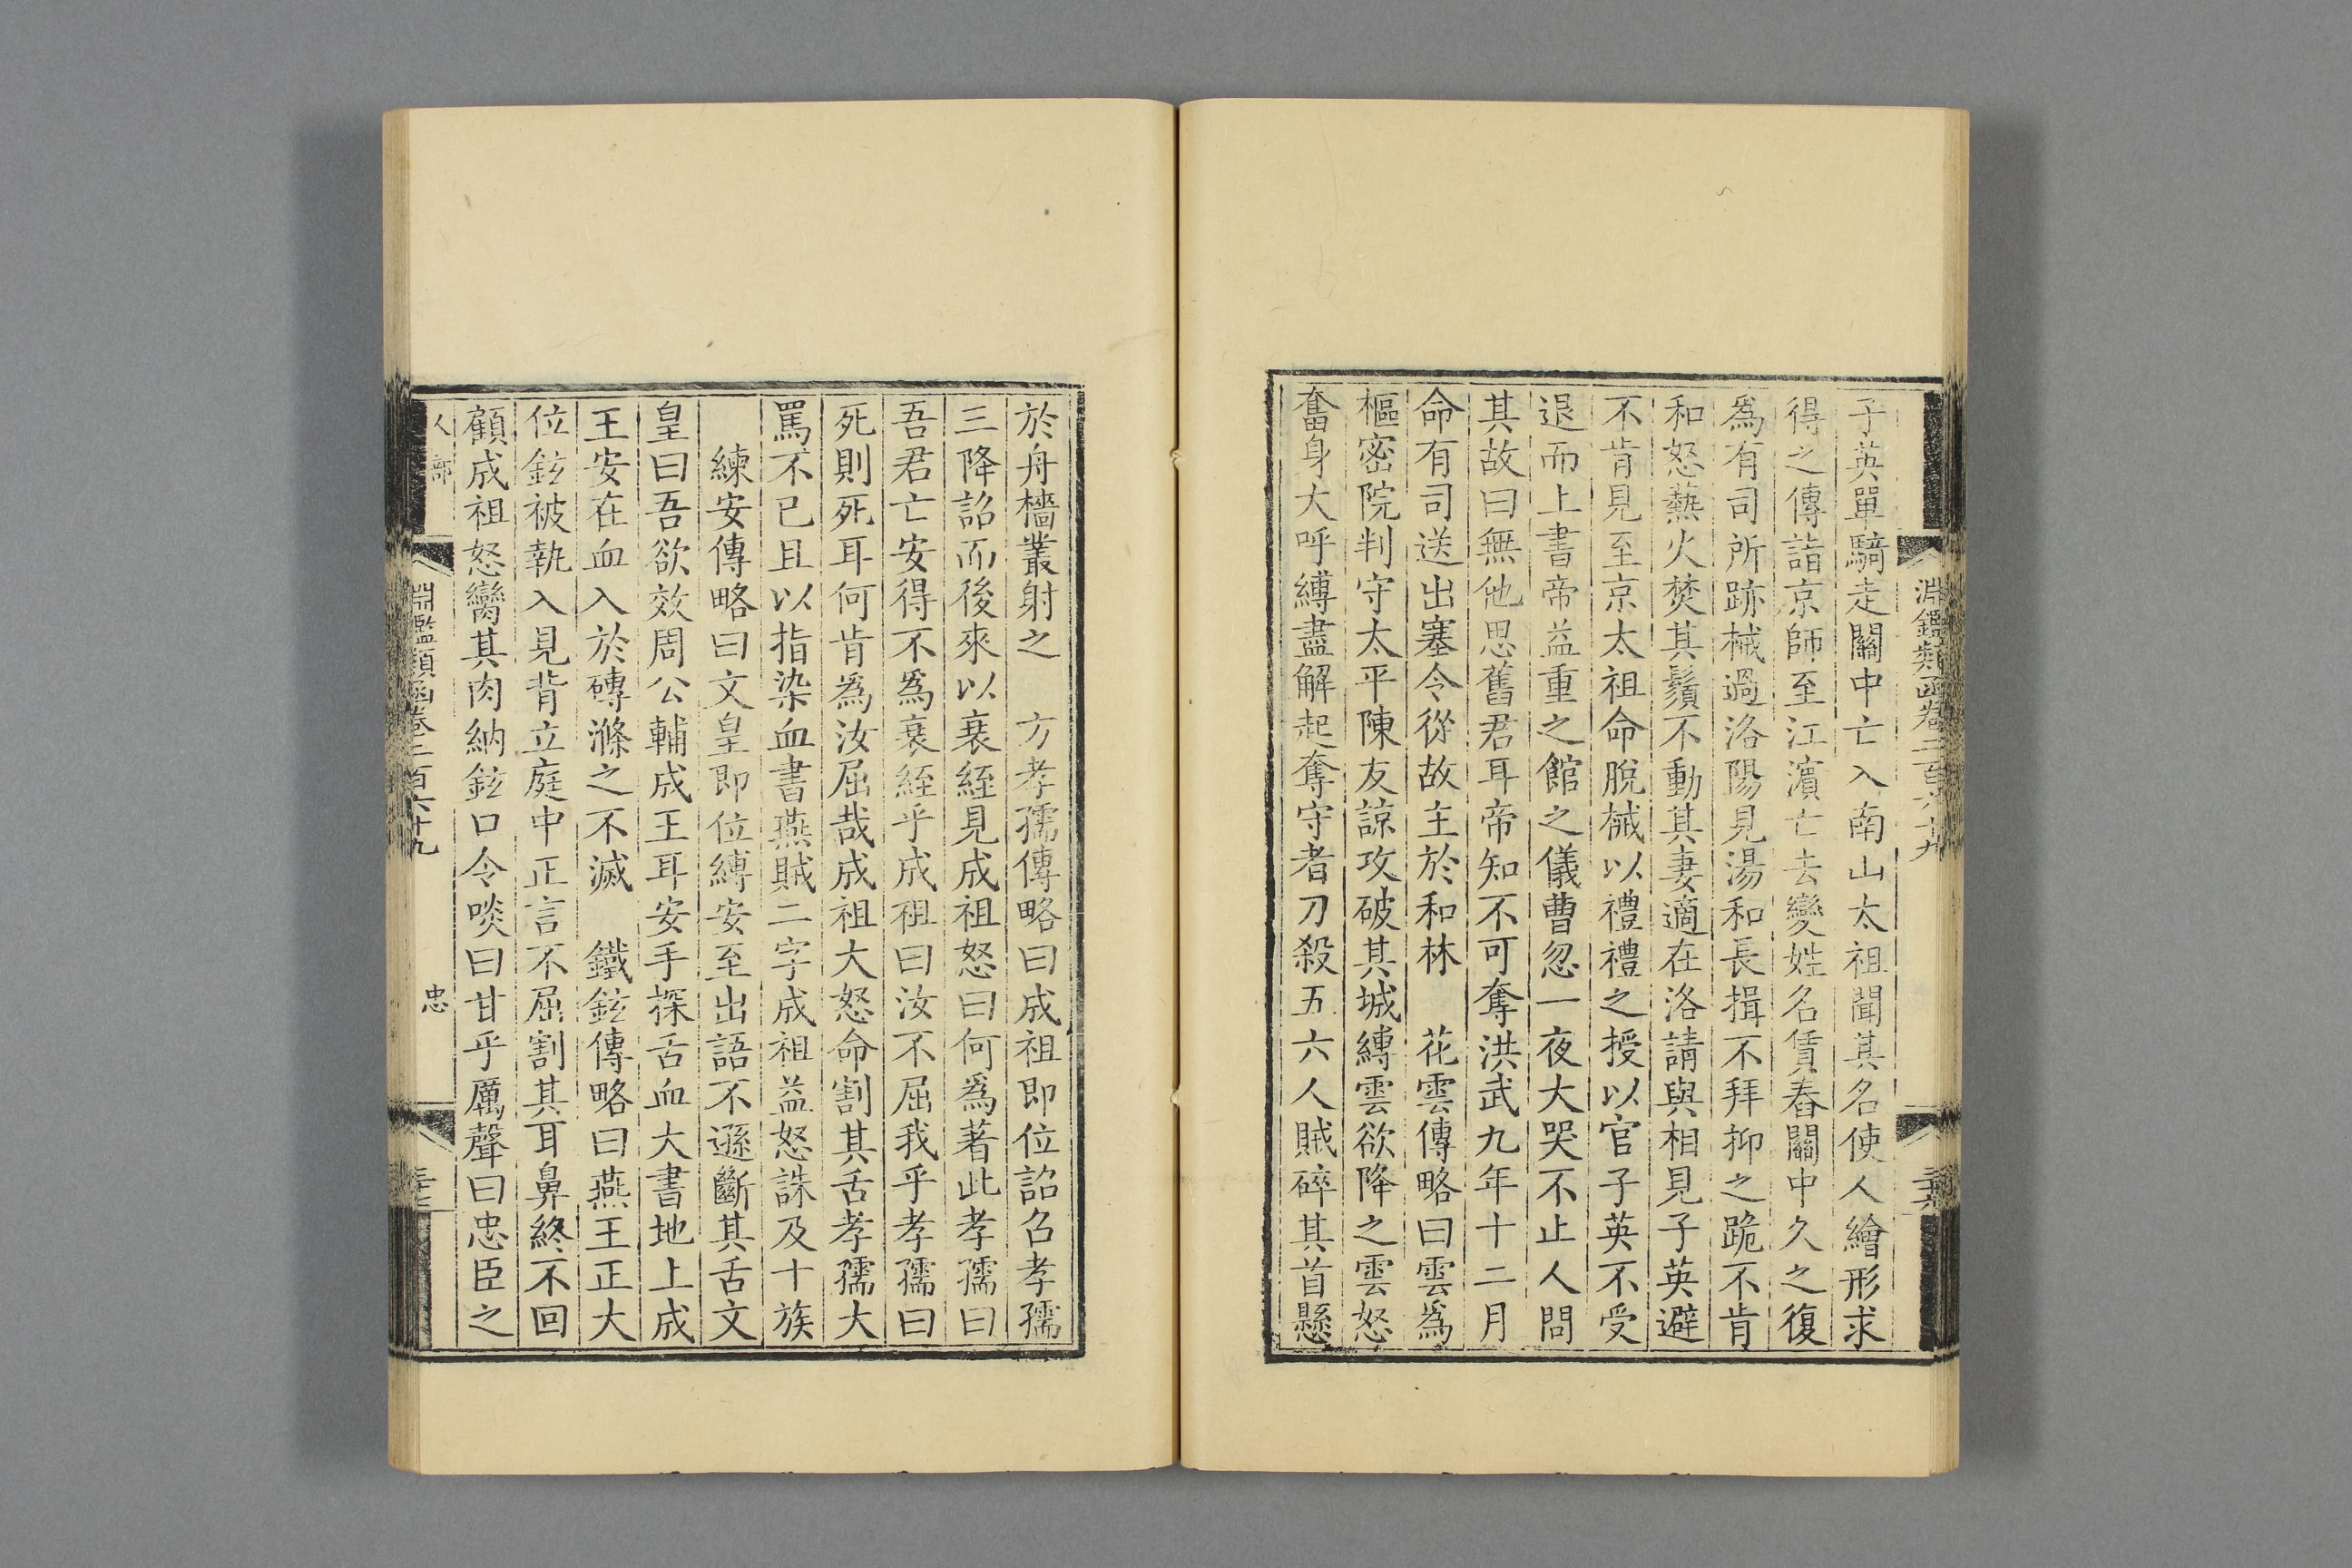 淵鑑類函卷二百六十九
三十六
子英單騎走關中亡入南山太祖聞其名使人繪形求
得之傳詣京師至江濵亡去變姓名賃舂關中久之復
爲有司所跡械過洛陽見湯和長揖不拜抑之跪不肯
和怒爇火焚其鬚不動其妻適在洛請與相見子英避
不肯見至京太祖命脫械以禮禮之授以官子英不受
退而上書帝益重之館之儀曹忽一夜大哭不止人問
其故曰無他思舊君耳帝知不可奪洪武九年十二月
命有司送出塞令從故主於和林　花雲傳略曰雲爲
樞密院判守太平陳友諒攻破其城縛雲欲降之雲怒
奮身大呼縛盡解起奪守者刀殺五六人賊碎其首懸
於舟檣叢射之　方孝孺傳略曰成祖即位詔召孝孺
三降詔而後來以衰絰見成祖怒曰何爲著此孝孺曰
吾君亡安得不爲衰絰乎成祖曰汝不屈我乎孝孺曰
死則死耳何肯爲汝屈哉成祖大怒命割其舌孝孺大
罵不已且以指染血書燕賊二字成祖益怒誅及十族
練安傳略曰文皇即位縛安至出語不遜斷其舌文
皇曰吾欲效周公輔成王耳安手探舌血大書地上成
王安在血入於磚滌之不滅　鐵鉉傳略曰燕王正大
位鉉被執入見背立庭中正言不屈割其耳鼻終不回
顧成祖怒臠其肉納鉉口令啖曰甘乎厲聲曰忠臣之
人部
淵鑑類函卷二百六十九
忠
三十七